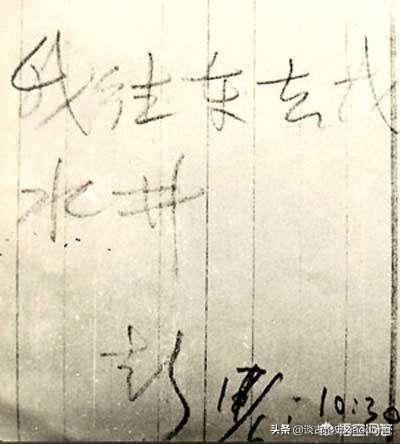 我往东去找
水井
彭 17/6 10:30
头条
悟空问答